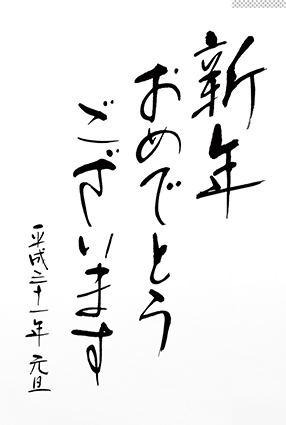 新年
おめでとう
ございます
平成二十一年 元旦